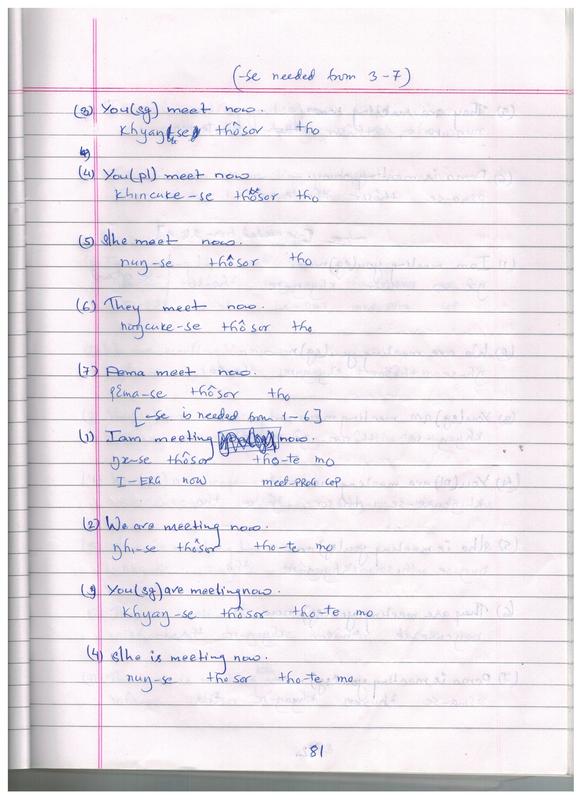 (-se needed from 3-7)
(3) You(sg) meet now.
khyaŋ-se thôsor tho
(4) You(pl) meet now
khincuke-se thôsor tho
(5) S/he meet now.
nuŋ-se thôsor tho
(6) They meet now.
noŋcuke-se thôsor tho
(7) Pema meet now.
pɛma-se thôsor tho
[-se is needed from 1-6]
(1) I am meeting now.
ŋʌ-se thôsor tho-te mo
I-ERG now meet-PROG COP
(2) We are meeting now.
ŋhi-se thôsor tho-te mo
(3) You(sg) are meeting now.
khyaŋ-se thôsor tho-te mo
(4) S/he is meeting now.
nuŋ-se thosor tho-te mo
81